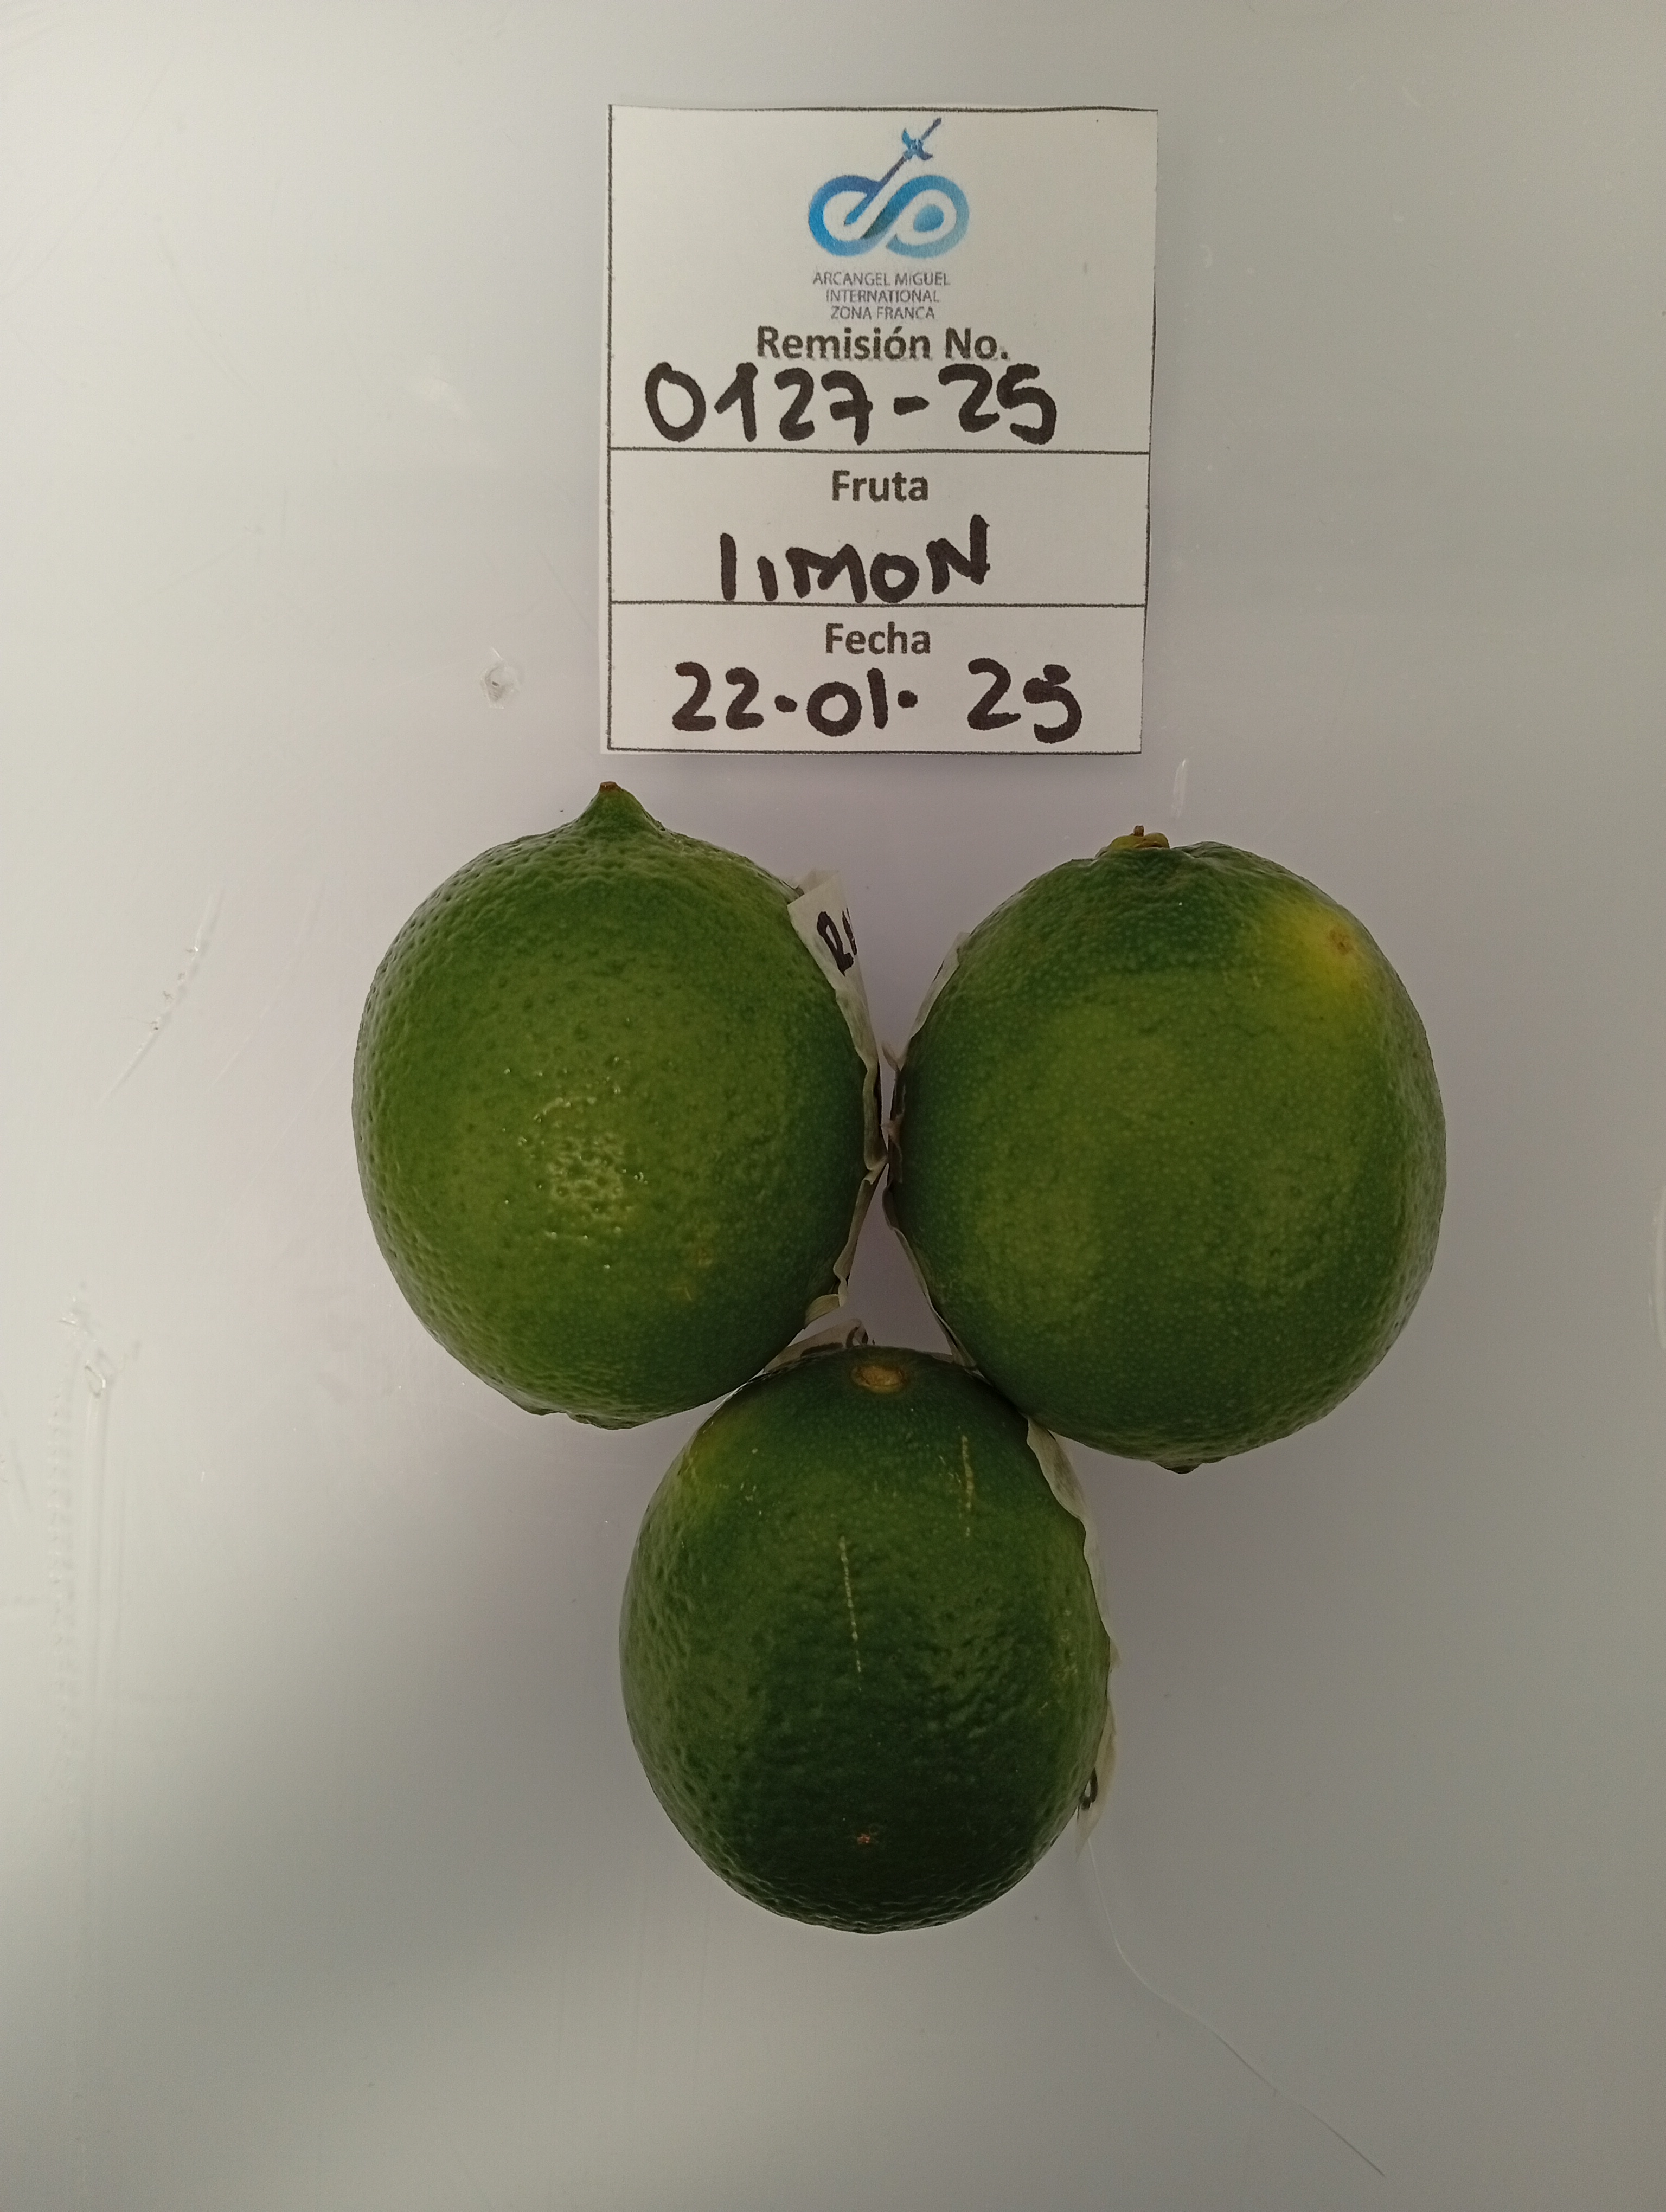 ARCANGEL MIGUEL
INTERNATIONAL
ZONA FRANCA
Remisión No.
0127-25
Fruta
limoN
Fecha
22·01· 25